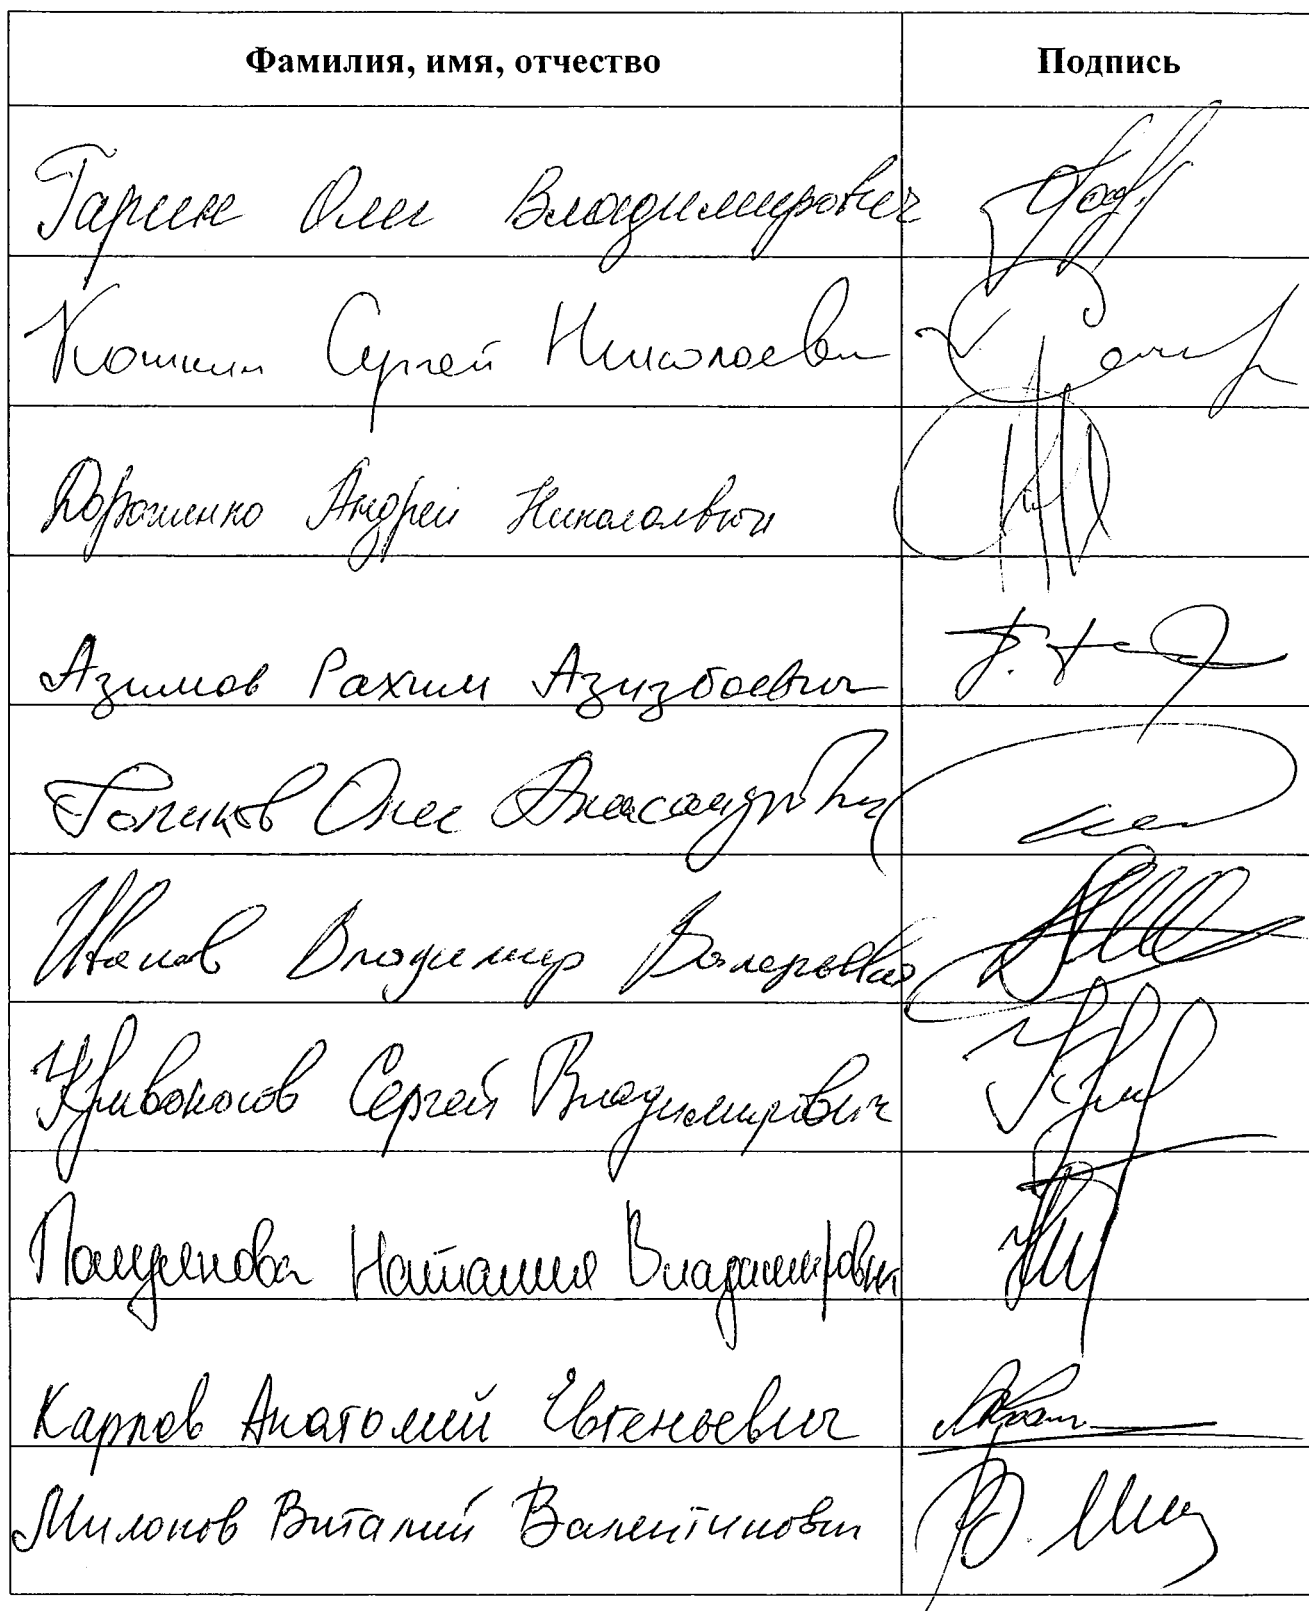 Фамилия, имя, отчество Подпись
Гарин Олег Владимирович
Кошкин Сергей Николаевич
Дорошенко Андрей Николаевич
Азимов Рахим Азизбоевич
Голиков Олег Александрович
Иванов Владимир Валерьевич
Кривоносов Сергей Владимирович
Полуянова Наталия Владимировна
Карпов Анатолий Евгеньевич
Милонов Виталий Валентинович